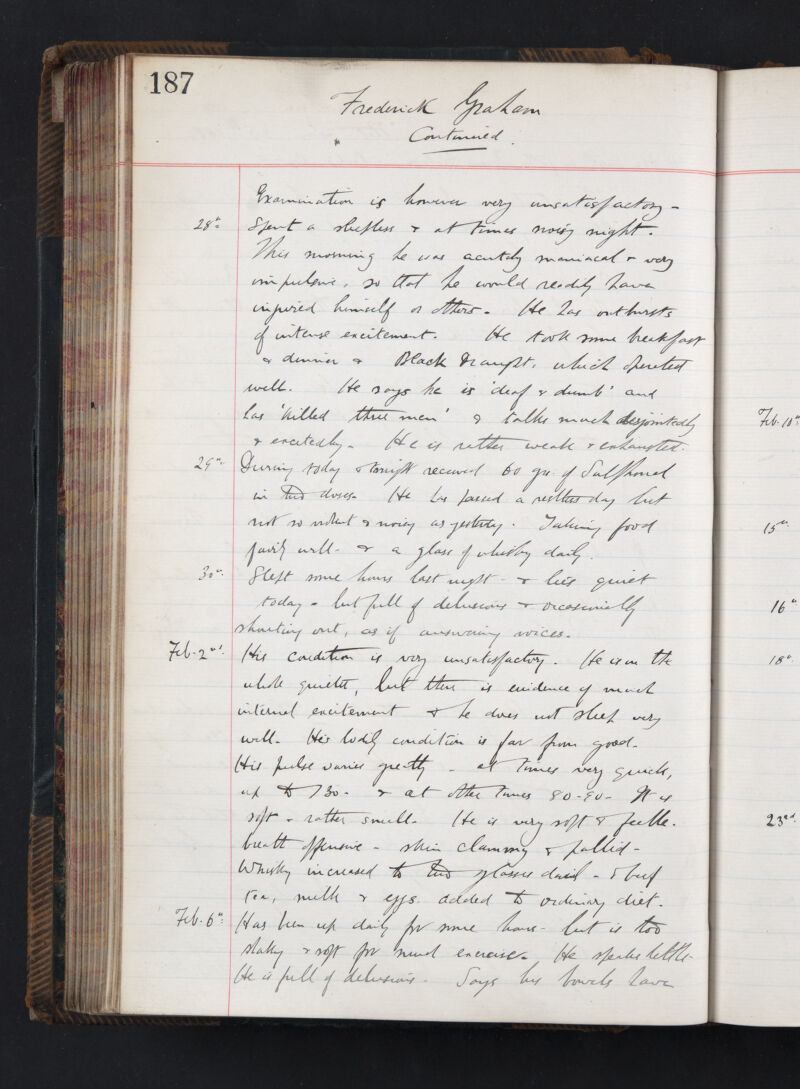 187
Frederick Graham
Continued.
Examination is however very unsatisfactory -
28th Spent a sleepless & at times noisy night.
This morning he was acutely maniacal & very
impulsive, so that he would readily have
injured himself or others. He has outbursts
of intense excitement. He took some breakfast
& dinner & Black Draught, which operated
well. He says he is 'deaf & dumb' and
has 'killed three men' & talks much disjointedly
& excitedly. He is rather weak & exhausted.
29th During today & tonight received 60 grs. of Sulphonal
in two doses. He has passed a restless day but
not so violent & noisy as yesterday. Taking food
fairly well - & a glass of whisky daily.
30th Slept some hours last night - & lies quiet
today - but full of delusions & occasionally
shouting out, as if answering voices.
Feb. 2nd His condition is very unsatisfactory. He is on the
whole quieter, but there is evidence of much
internal excitement & he does not sleep very
well. His bodily condition is far from good.
His pulse varies greatly - at times very quick,
up to 130 - & at other times 80-90. It is
soft - rather small. He is very soft & feeble.
breath offensive - skin clammy & pallid -
Whisky increased to two glasses daily - & beef
tea, milk & eggs added to ordinary diet.
Feb. 6th Has been up daily for some hours - but is too
shaky & soft for much exercise. He speaks little.
He is full of delusions. Says his bowels have
Feb. 10th
15th
16th
18th
23rd